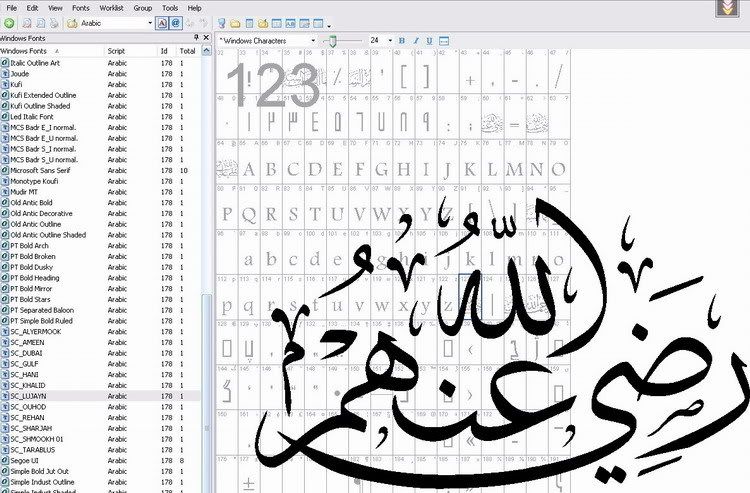 File Edit View Fonts Worklist Group Tools Help
Arabic
Windows Fonts
Windows Fonts Script Id Total
Italic Outline Art Arabic 178 1
Joude Arabic 178 1
Kufi Arabic 178 1
Kufi Extended Outline Arabic 178 1
Kufi Outline Shaded Arabic 178 1
Led Italic Font Arabic 178 1
MCS Badr E_I normal. Arabic 178 1
MCS Badr E_U normal. Arabic 178 1
MCS Badr S_I normal. Arabic 178 1
MCS Badr S_U normal. Arabic 178 1
Microsoft Sans Serif Arabic 178 10
Monotype Koufi Arabic 178 1
Mudir MT Arabic 178 1
Old Antic Bold Arabic 178 1
Old Antic Decorative Arabic 178 1
Old Antic Outline Arabic 178 1
Old Antic Outline Shaded Arabic 178 1
PT Bold Arch Arabic 178 1
PT Bold Broken Arabic 178 1
PT Bold Dusky Arabic 178 1
PT Bold Heading Arabic 178 1
PT Bold Mirror Arabic 178 1
PT Bold Stars Arabic 178 1
PT Separated Baloon Arabic 178 1
PT Simple Bold Ruled Arabic 178 1
SC_ALYERMOOK Arabic 178 1
SC_AMEEN Arabic 178 1
SC_DUBAI Arabic 178 1
SC_GULF Arabic 178 1
SC_HANI Arabic 178 1
SC_KHALID Arabic 178 1
SC_LUJAYN Arabic 178 1
SC_OUHOD Arabic 178 1
SC_REHAN Arabic 178 1
SC_SHARJAH Arabic 178 1
SC_SHMOOKH 01 Arabic 178 1
SC_TARABLUS Arabic 178 1
Segoe UI Arabic 178 8
Simple Bold Jut Out Arabic 178 1
Simple Indust Outline Arabic 178 1
Simple Indust Shaded Arabic 178 1
* Windows Characters 24 B I U
123
A B C D E F G H I J K L M N O
P Q R S T U V W X Y Z
a b c d e f g h i j k l m n o
p q r s t u v w x y z
رَضِيَ اللّٰهُ عَنْهُمْ